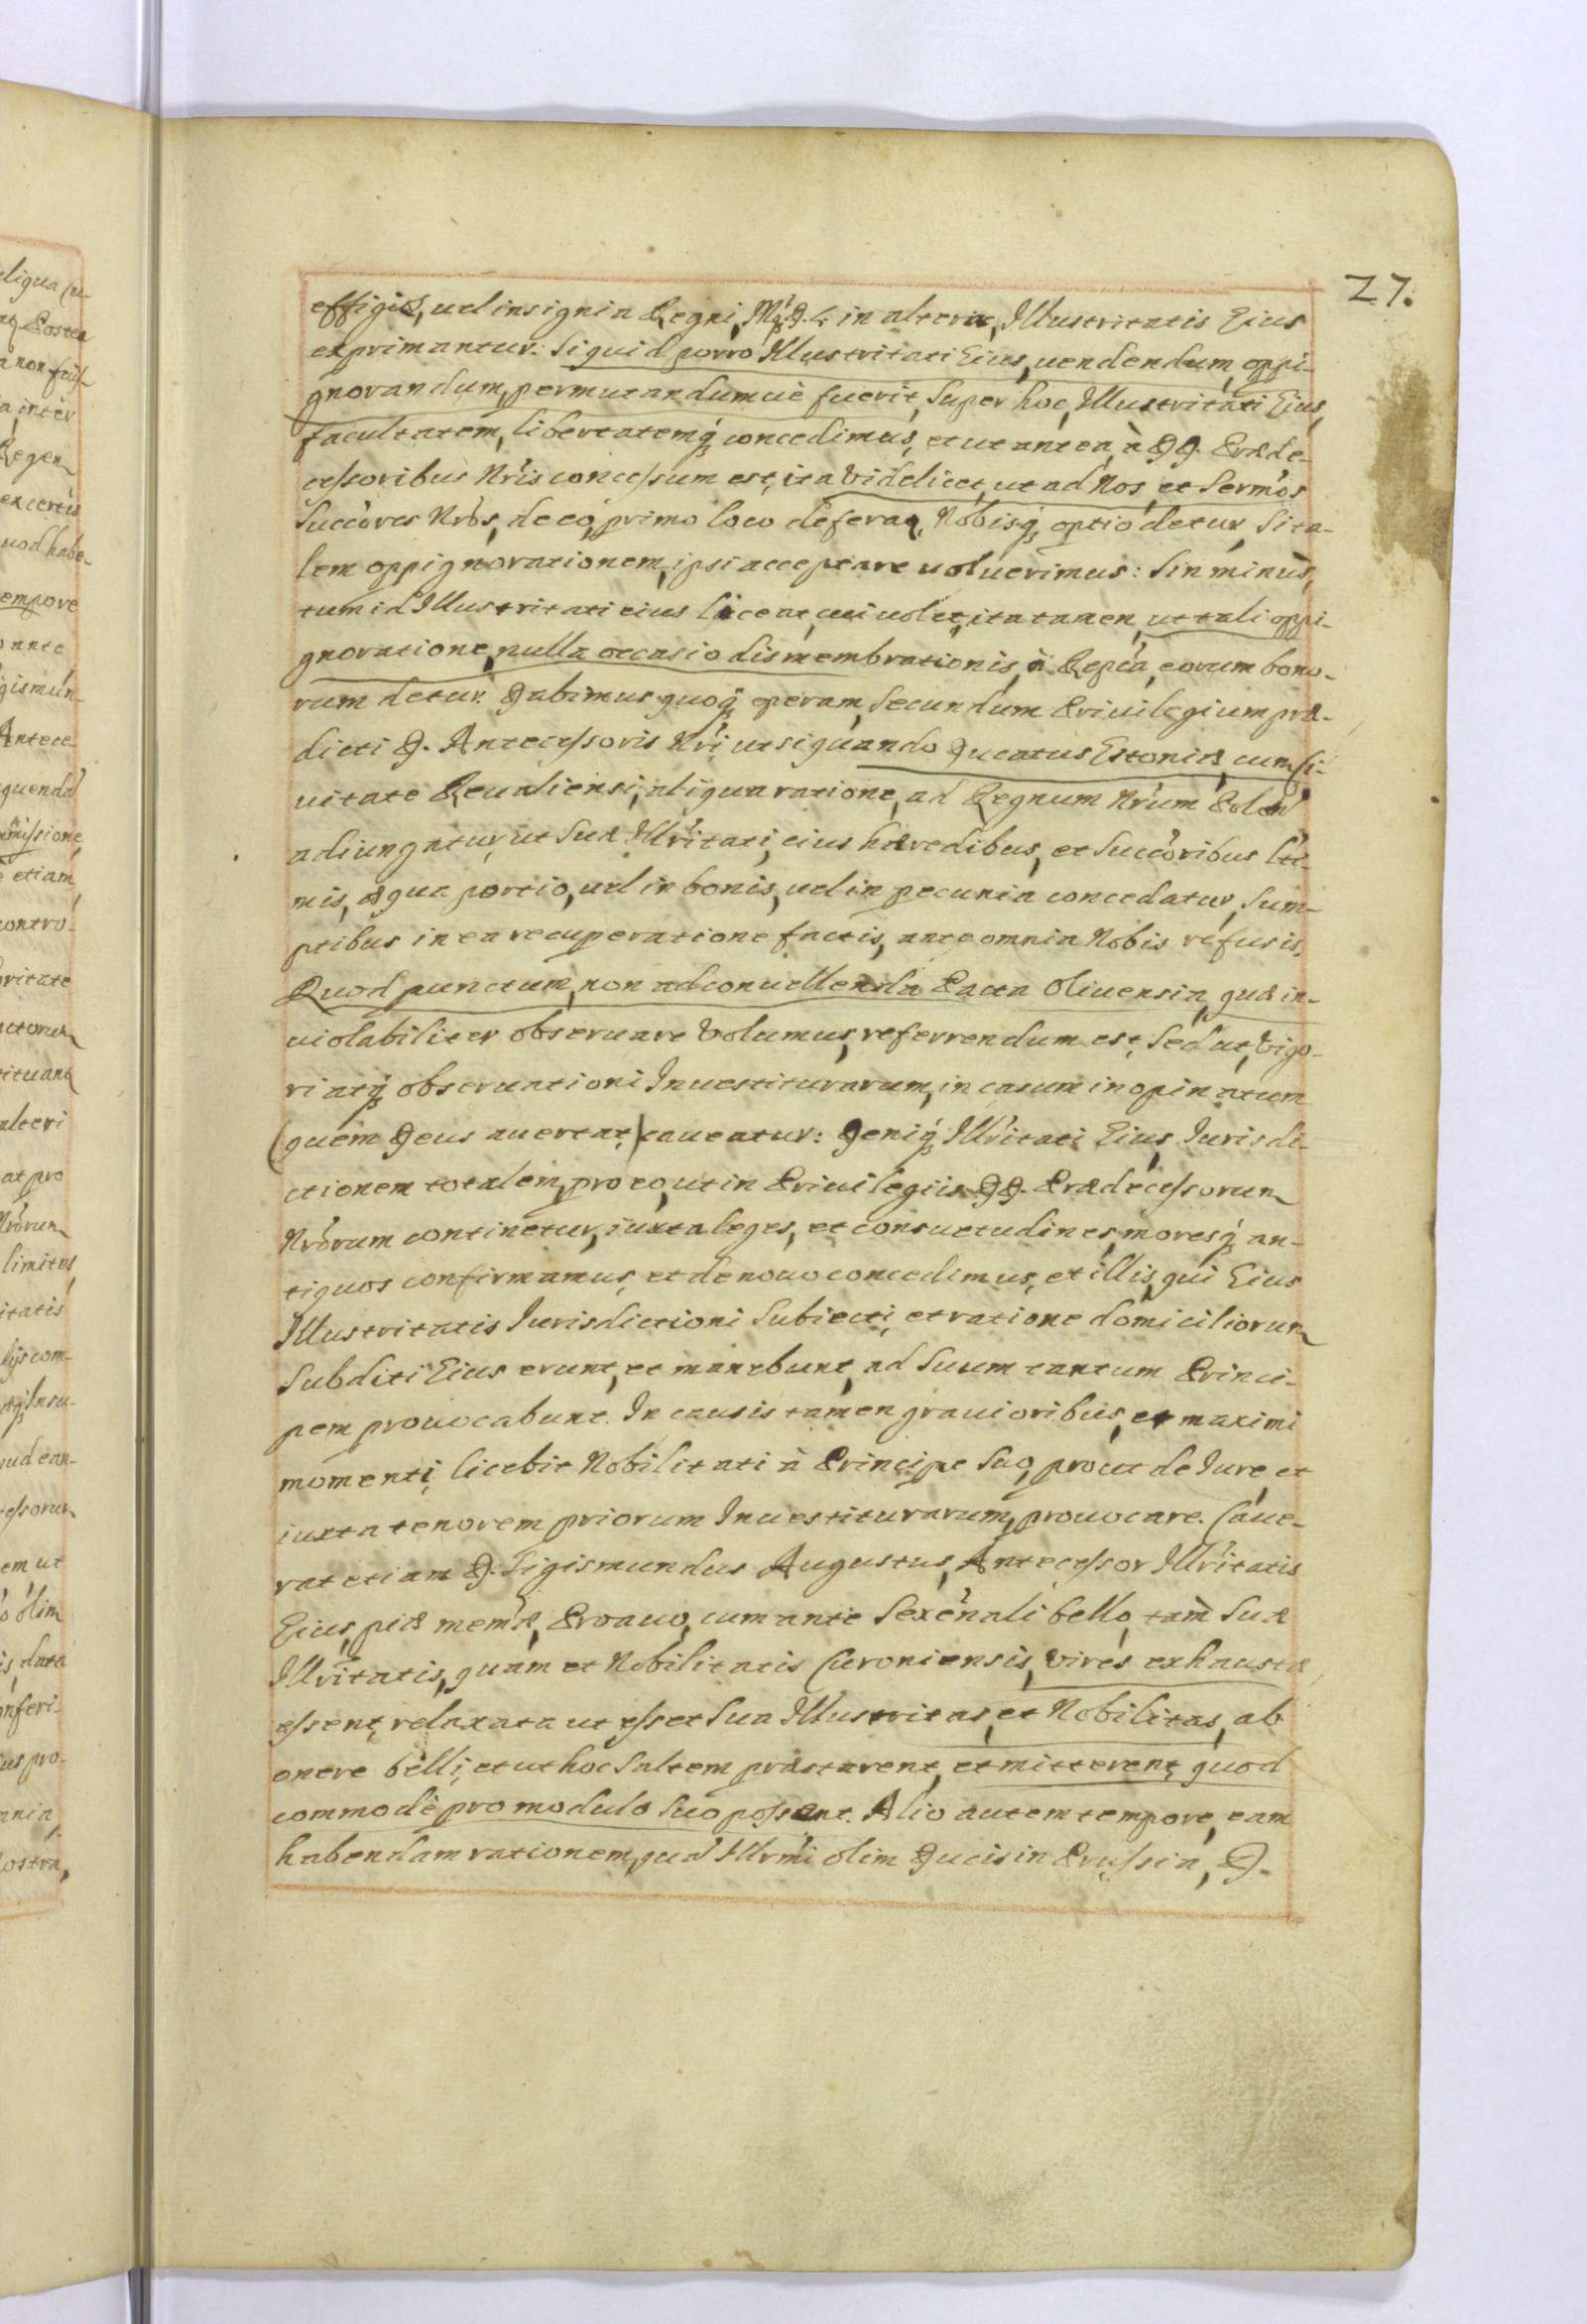 27.
effigies, uel insignia Regni, Mgi. D. L. in altera, Illustritatis Eius
exprimantur: Siquid porro Illustritati Eius, uendendum, oppi-
gnorandum, permutandumuè fuerit, Super hoc, Illustritati Eius,
facultatem, libertatemq́; concedimus, et ut antea, à DD. Præde-
cessoribus Nr̃is concessum est, ita Videlicet, ut ad Nos, et Serm̃os
Succ̃ores Nr̃os, de eo, primo loco deferatq, Nobisq́; optio detur, Si ta-
lem oppignorationem, ipsi acceptare uoluerimus: Sin minùs,
tum id Illustritati eius liceat, cui uolet, ita tamen, ut tali oppi-
gnoratione, nulla occasio dismembrationis, à Repĩca, eorum bono-
rum detur. Dabimus quoq́; operam, Secundum Priuilegium præ-
dicti D. Antecessoris Nr̃i, ut si quando Ducatus Estoniæ, cum Ci-
uitate Reualiensi, aliqua ratione, ad Regnum Nr̃um Polon̄
adiungatur, ut Suæ Illr̃itati, eius hæredibus, et Succ̃oribus ltĩ-
mis, æqua portio, uel in bonis, uel in pecunia concedatur, Sum-
ptibus in ea recuperatione factis, ante omnia Nobis refusis.
Quod punctum, non ad conuellenda Pacta Oliuensia, quæ in-
uiolabiliter obseruare Volumus, referrendum est, Sed ut, Vigo-
ri atq́; obseruationi Inuestiturarum, in casum inopinatum
(quem Deus auertat) caueatur: Deniq́; Illr̃itati Eius, Iurisdi-
ctionem totalem, pro eo, ut in Priuilegiis DD. Prædecessorum
Nr̃orum continetur, iuxta leges, et consuetudines, moresq́; an-
tiquos confirmamus, et de nouo concedimus, et illis, qui Eius
Illustritatis Iurisdictioni Subiecti, et ratione domiciliorum
Subditi Eius erunt, et manebunt, ad Suum tantum Princi-
pem prouocabunt. In causis tamen grauioribus, et maximi
momenti, licebit Nobilitati à Principe Suo, prout de Iure, et
iuxta tenorem priorum Inuestiturarum, prouocare. Caue-
rat etiam D. Sigismundus Augustus, Antecessor Illr̃itatis
Eius, piæ mem̃æ, Proauo, cum ante Sexen̄ali bello, tam̀ Suæ
Illr̃itatis, quam et Nobilitatis Curoniensis, vires exhaustæ
essent, relaxata ut esset Sua Illustritas, et Nobilitas, ab
onere belli, et ut hoc Saltem præstarent, et mitterent, quod
commodè pro modulo Suo possent. Alio autem tempore, eam
habendam rationem, quā Illr̃mi olim Ducis in Prussia, D.